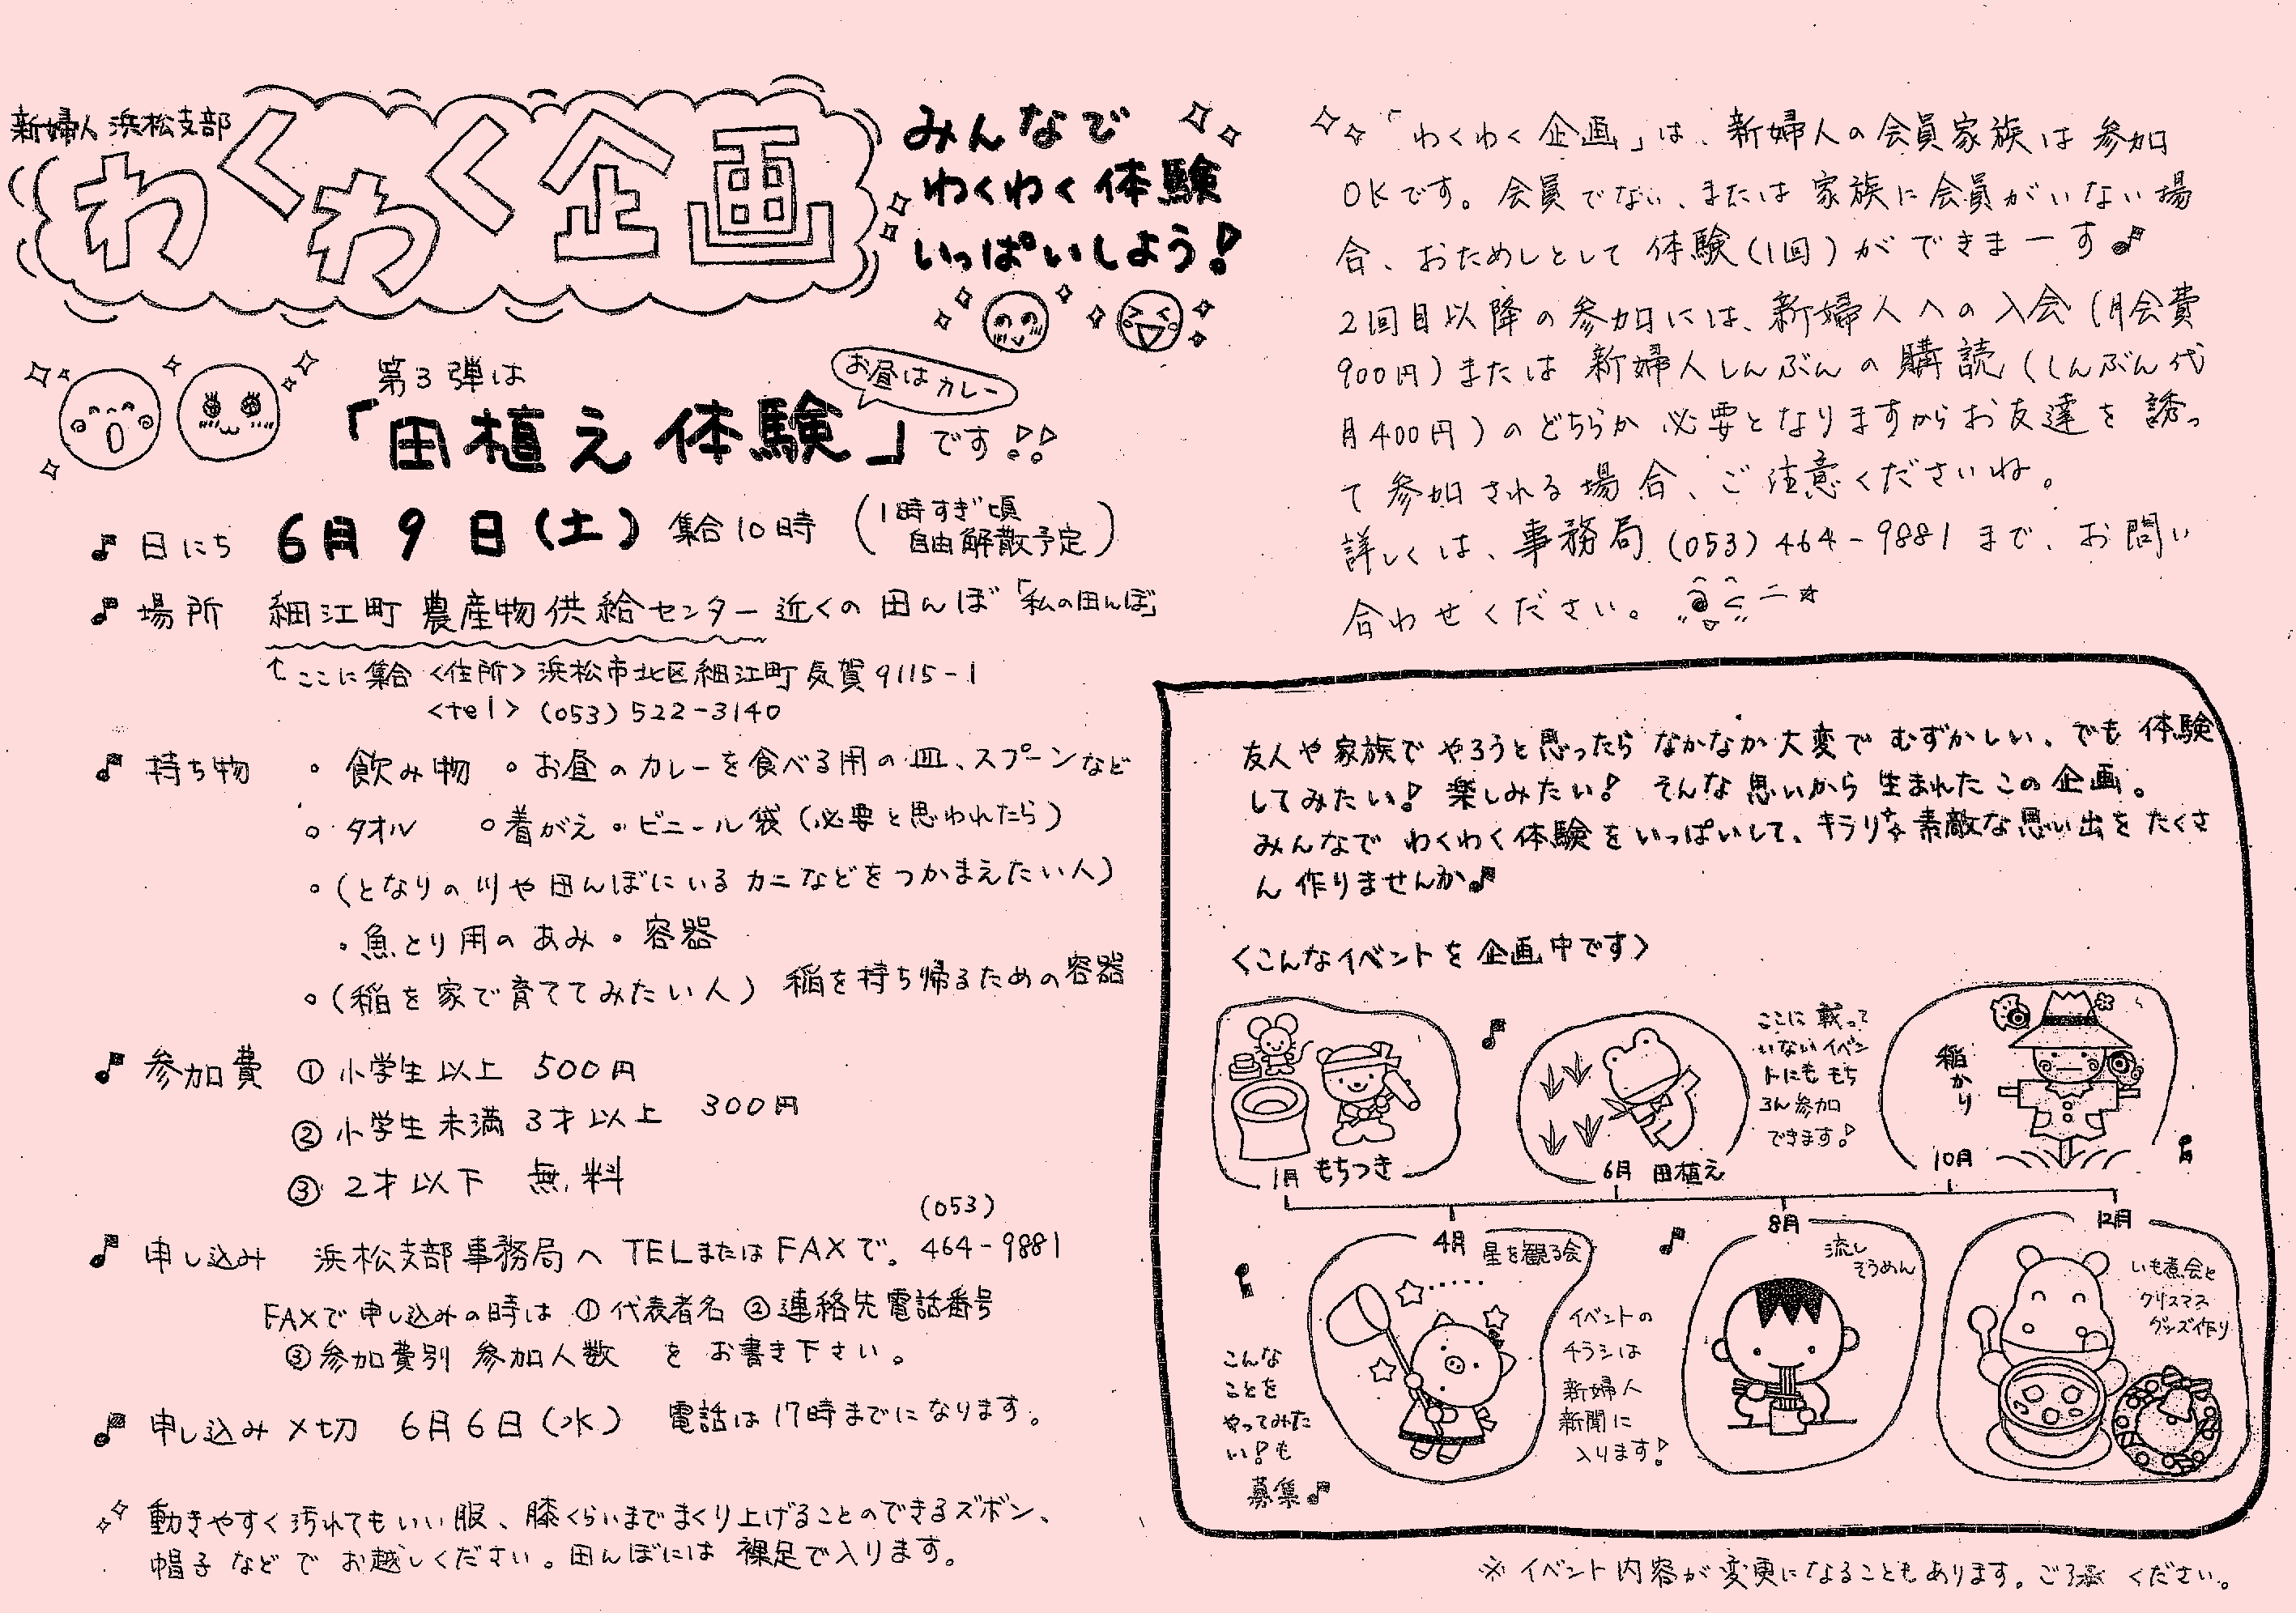 新婦人 浜松支部
わくわく企画
みんなで
わくわく体験
いっぱいしよう!
第3弾は
「田植え体験」です!!
お昼はカレー
日にち 6月9日(土) 集合10時 (1時すぎ頃
自由解散予定)
場所 細江町農産物供給センター近くの田んぼ「私の田んぼ」
↑ここに集合 <住所> 浜松市北区細江町気賀9115-1
<tel> (053) 522-3140
持ち物 ・飲み物 ・お昼のカレーを食べる用の皿、スプーンなど
・タオル ・着がえ ・ビニール袋(必要と思われたら)
・(となりの川や田んぼにいるカニなどをつかまえたい人)
・魚とり用のあみ・容器
・(稲を家で育ててみたい人) 稲を持ち帰るための容器
参加費 ①小学生以上 500円
②小学生未満3才以上 300円
③2才以下 無料
申し込み 浜松支部事務局へTELまたはFAXで。(053)464-9881
FAXで申し込みの時は ①代表者名 ②連絡先電話番号
③参加費別 参加人数 をお書き下さい。
申し込み〆切 6月6日(水) 電話は17時までになります。
動きやすく汚れてもいい服、膝くらいまでまくり上げることのできるズボン、
帽子などでお越しください。田んぼには裸足で入ります。
「わくわく企画」は、新婦人の会員家族は参加
OKです。会員でない、または家族に会員がいない場
合、おためしとして体験(1回)ができまーす♪
2回目以降の参加には、新婦人への入会(月会費
900円)または新婦人しんぶんの購読(しんぶん代
月400円)のどちらか必要となりますからお友達を誘っ
て参加される場合、ご注意くださいね。
詳しくは、事務局(053)464-9881まで、お問い
合わせください。
友人や家族でやろうと思ったらなかなか大変でむずかしい。でも体験
してみたい! 楽しみたい! そんな思いから生まれたこの企画。
みんなでわくわく体験をいっぱいして、キラリ素敵な思い出をたくさ
ん作りませんか♪
<こんなイベントを企画中です>
1月 もちつき
6月 田植え
ここに載って
いないイベン
トにももち
ろん参加
できます!
稲かり
10月
4月 星を観る会
8月
流し
そうめん
12月
いも煮会と
クリスマス
グッズ作り
こんな
ことを
やってみた
い!も
募集♪
イベントの
チラシは
新婦人
新聞に
入ります!
※イベント内容が変更になることもあります。ご了承ください。